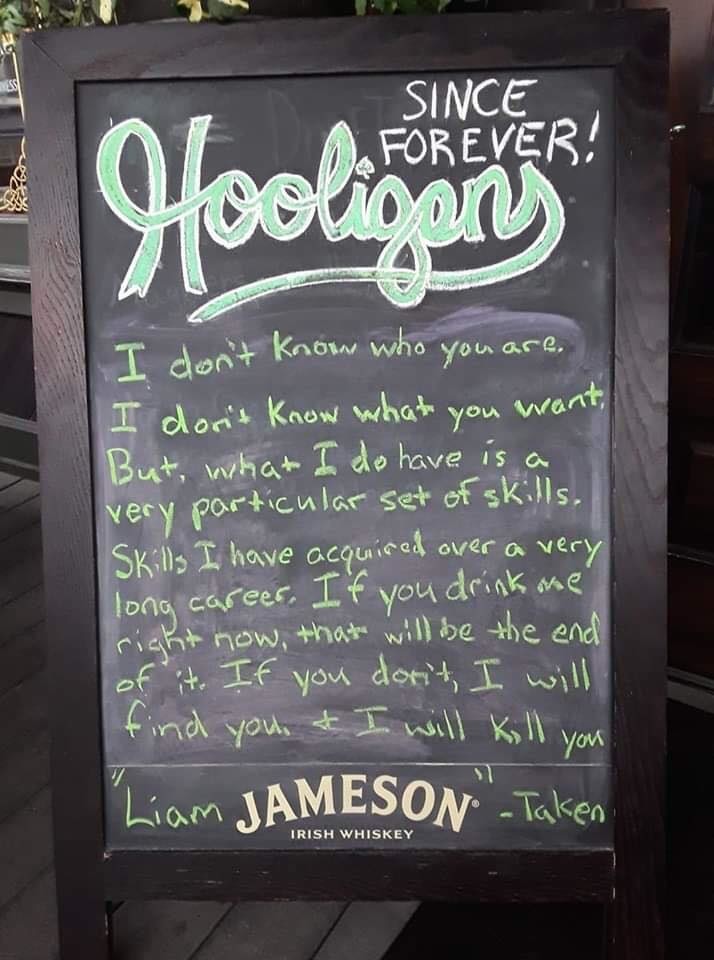 SINCE
FOREVER!
Hooligans
I don't know who you are.
I don't know what you want.
But, what I do have is a
very particular set of skills.
Skills I have acquired over a very
long career. If you drink me
right now, that will be the end
of it. If you don't, I will
find you. & I will kill you
"Liam JAMESON" - Taken
IRISH WHISKEY